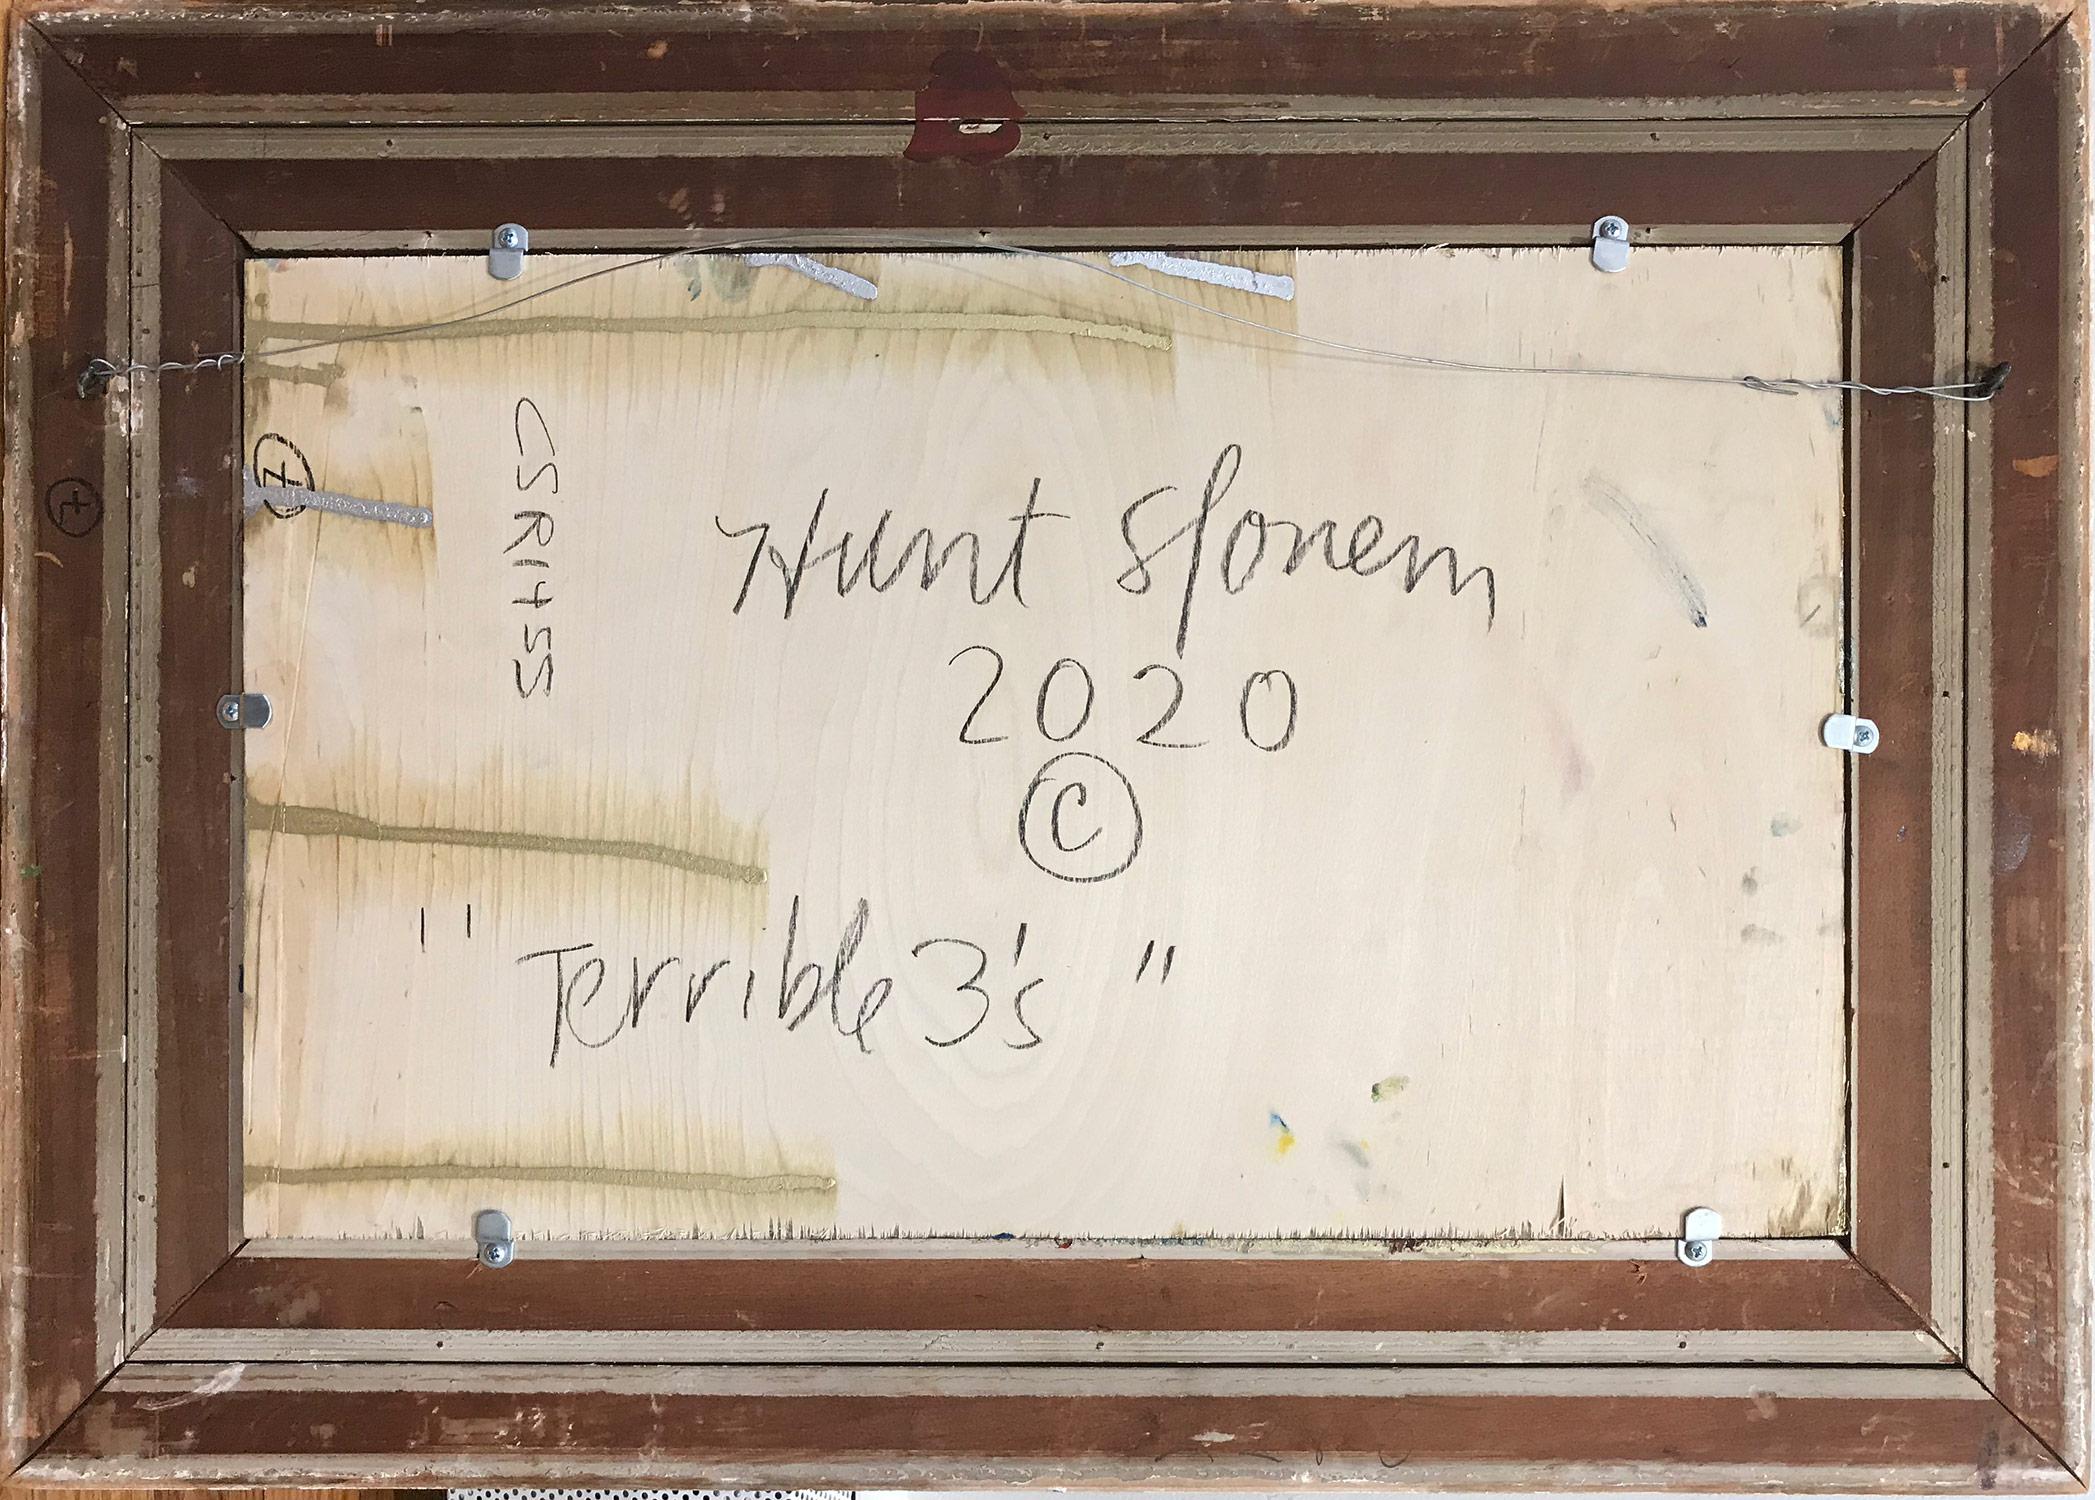 Hunt Slonem
2020
©
"Terrible 3's"
CSRIHSS